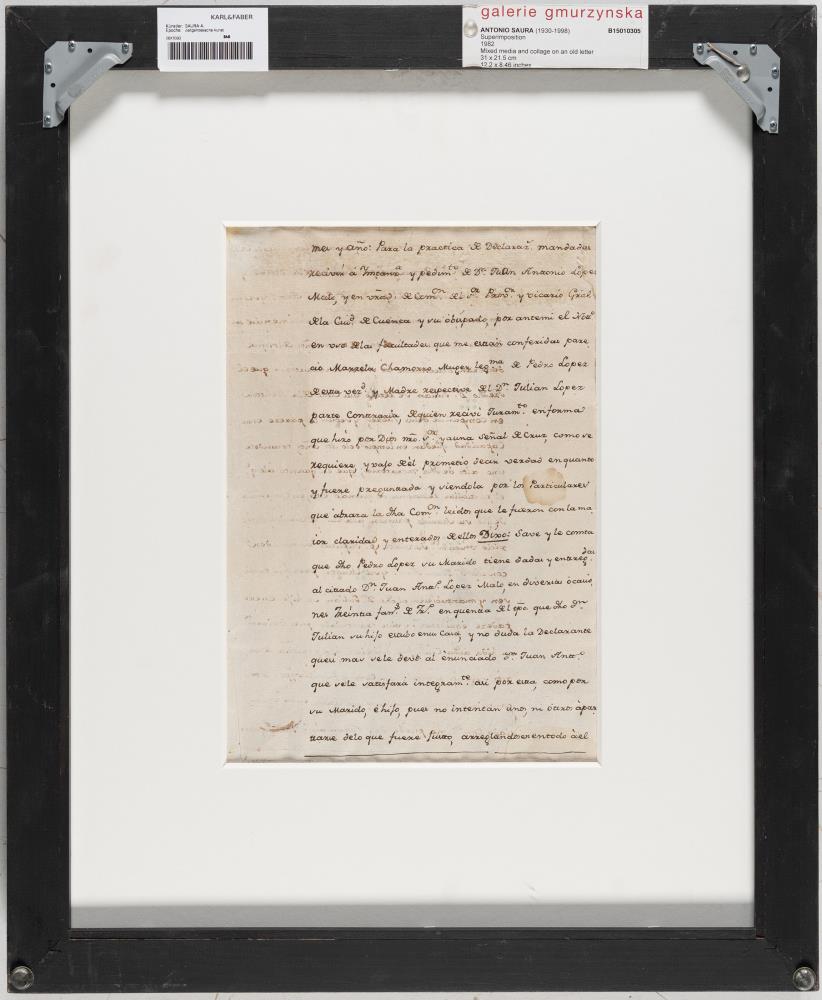 KARL&FABER
Künstler: SAURA A.
Epoche: zeitgenössische Kunst
galerie gmurzynska
ANTONIO SAURA (1930-1998) B15010305
Superimposition
1982
Mixed media and collage on an old letter
31 x 21.5 cm
12.2 x 8.46 inches
mes y año: Para la practica de Declaraz.ⁿ mandadas
recivir á Ynstanz.ᵃ y pedim.ᵗᵒ de D.ⁿ Juan Antonio Lopez
Malo, y en virtud de Com.ᵒⁿ del S.ᵒʳ Prov.ᵒʳ y vicario Gral
de la Ciud.ᵈ de Cuenca y su obispado, por antemi el Not.ᵒ
en uso de las facultades que me están conferidas pare
ció Marzela Chamorro Muger leg.ᵐᵃ de Pedro Lopez
de esta vez.ᵈ y Madre respective del D.ⁿ Julian Lopez
parte Contraria, de quien recivi Juram.ᵗᵒ en forma
que hizo por Dios nrô. S.ᵒʳ y a una señal de Cruz como se
requiere, y vajo de él prometio decir verdad en quanto
y fuere preguntada y siendola por los Particulares
que abraza la dha Com.ᵒⁿ leidos que le fueron con la ma
ior claridad, y enterados de ellos Dixo: Save y le consta
que dho Pedro Lopez su Marido tiene dadas y entreg.ᵈᵃˢ
al citado D.ⁿ Juan Ant.ᵒ Lopez Malo, en diversas òcasio
nes Treinta fan.ˢ de Tr.ᵒ en quenta del tpo. que dho D.ⁿ
Julian su hijo estubo en su Casa, y no duda la Declarante
que si mas se le deve al ênunciado D.ⁿ Juan Ant.ᵒ
que se le satisfará integram.ᵗᵉ asi por esta, como por
su Marido, é hijo, pues no intentan ùnos, ni ótros àpar
tarse de lo que fuere Justo, arreglandose en todo àel